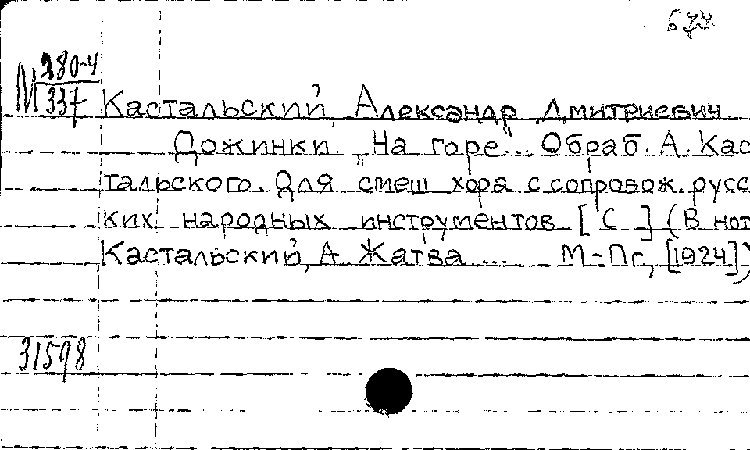 М 280-4
337
Кастальский, Александр Дмитриевич
Дожинки. "На горе"... Обраб. А. Кас
тальского. Для смеш хора с сопровож. русс
ких народных инструментов [С] (В нот
Кастальский, А. Жатва ... М-Пг, [1924])
31598